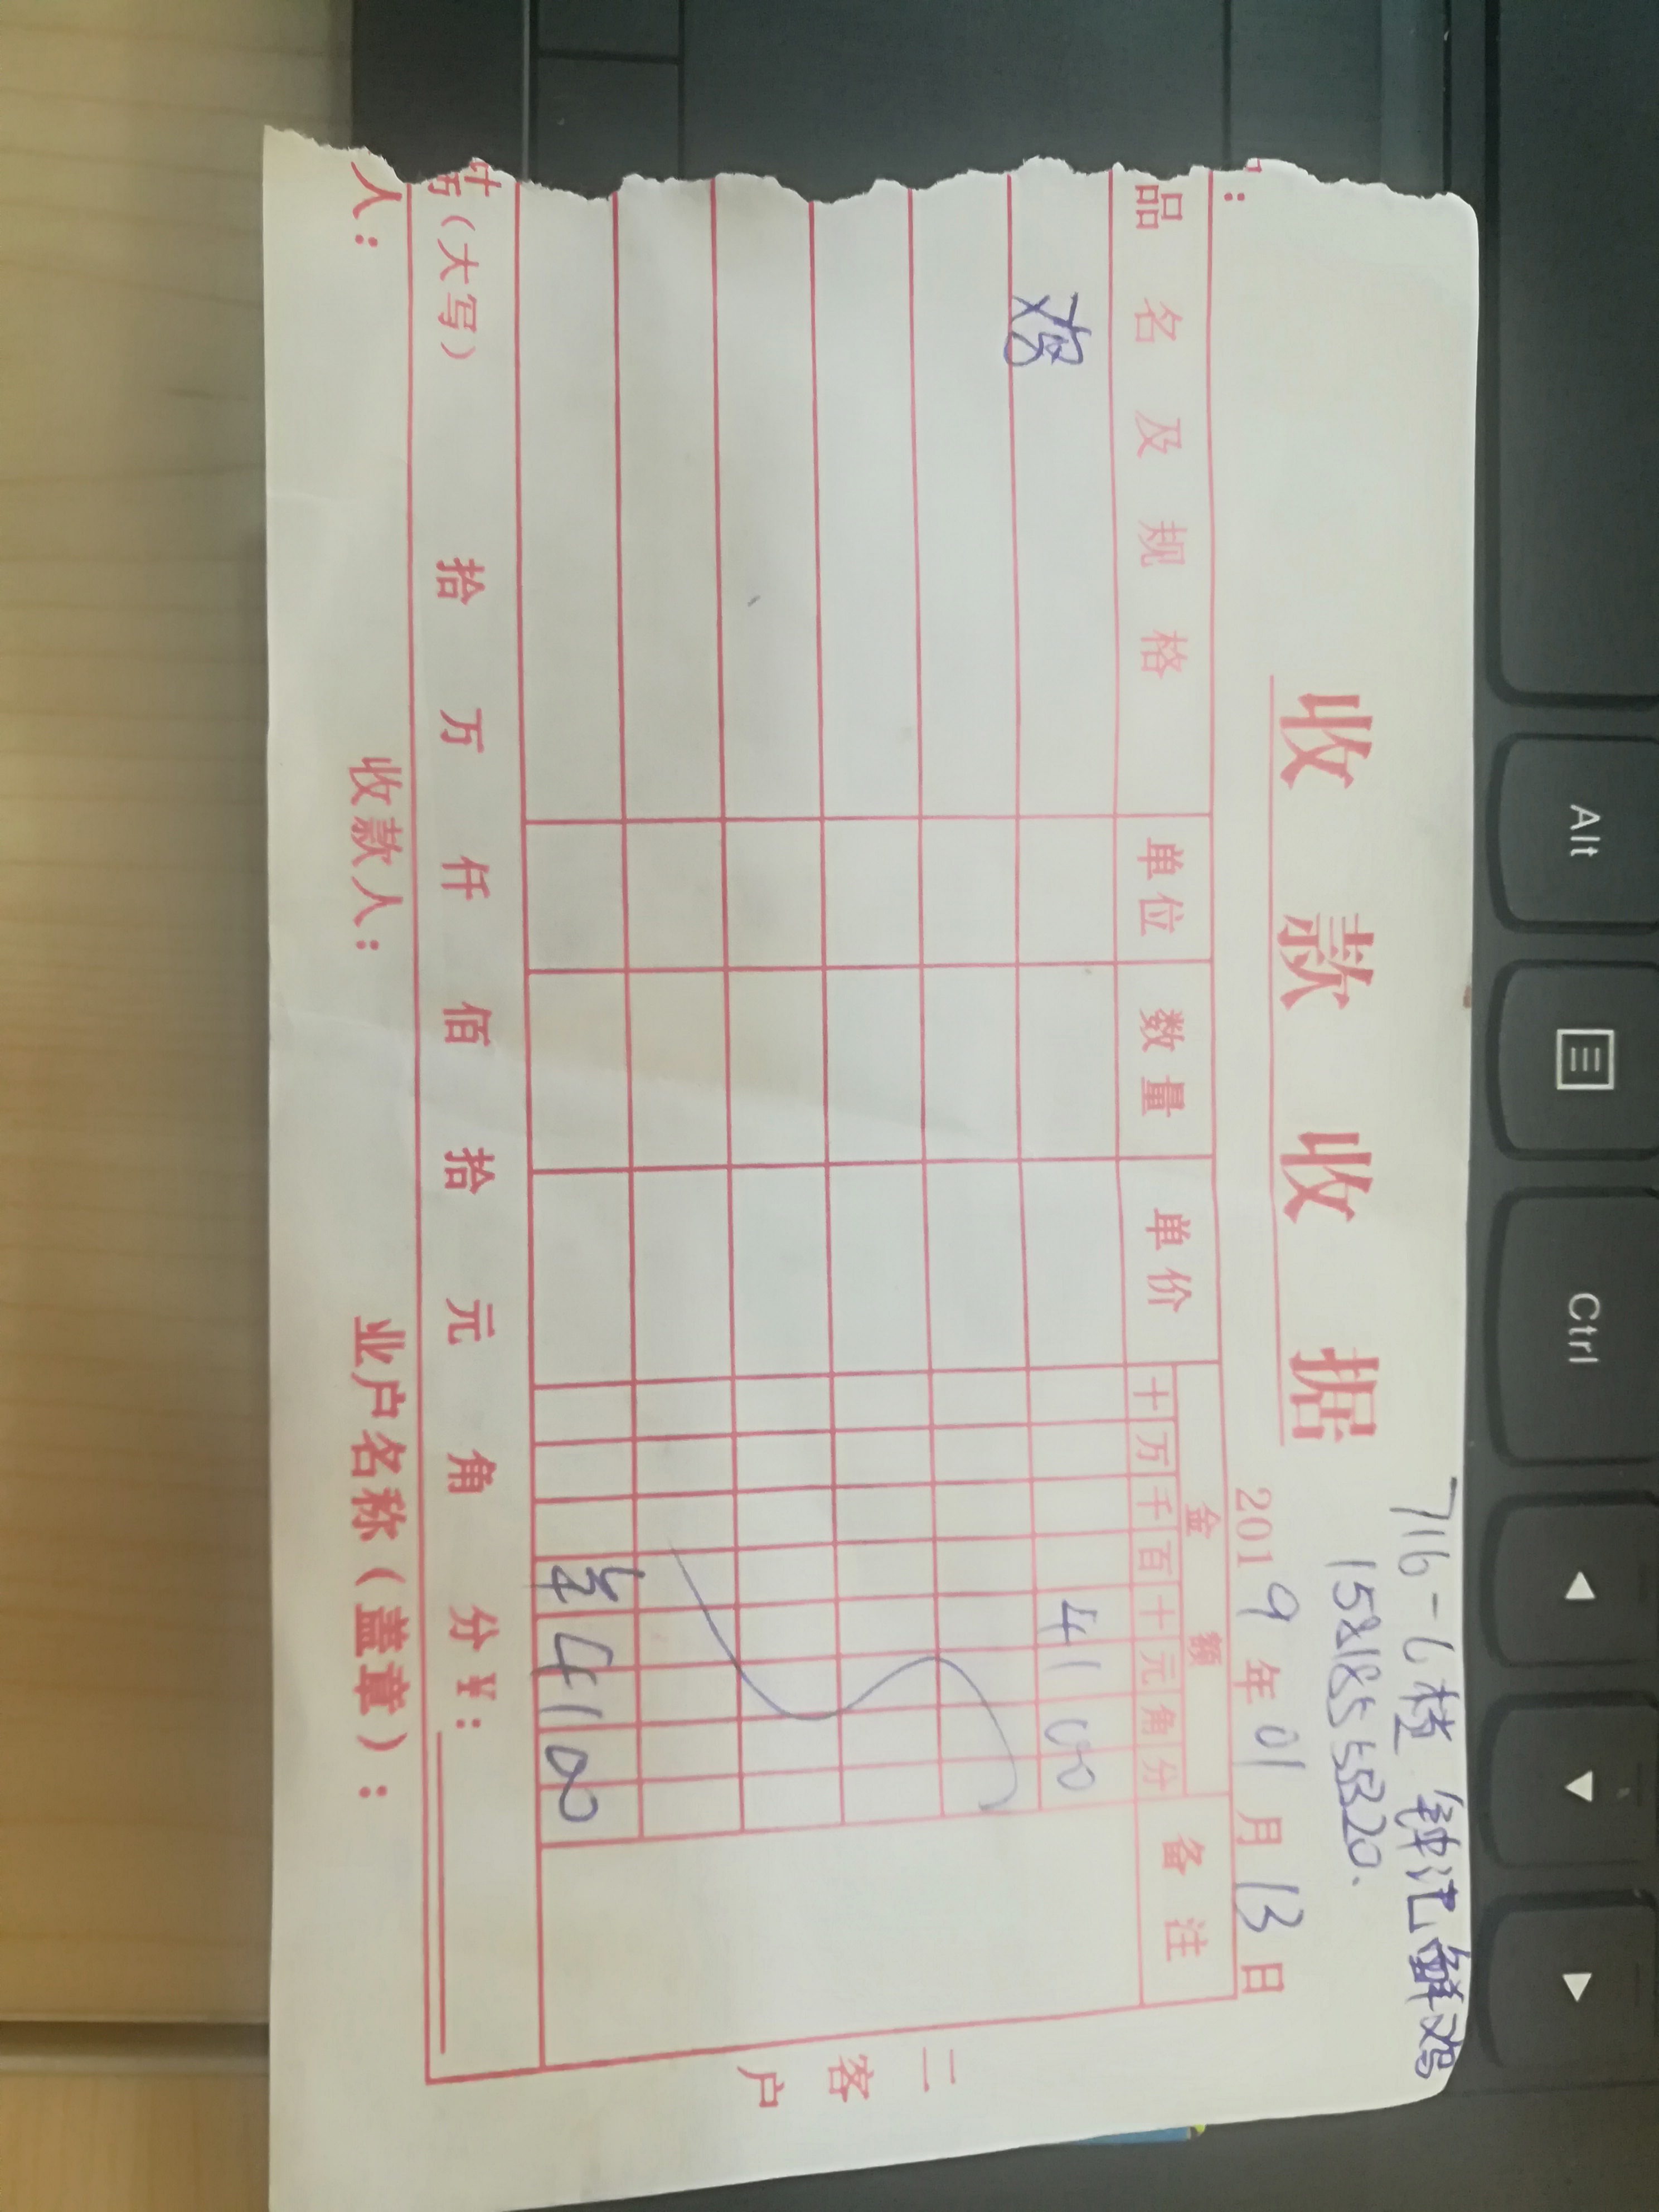 Alt Ctrl
716-6档 钟记鲜鸡
15818555320.
收款收据
2019年01月13日
:
品名及规格 单位 数量 单价 金额 备注
十万千百十元角分
鸡 4100
¥4100
二客户
(大写) 拾 万 仟 佰 拾 元 角 分¥:
人: 收款人: 业户名称(盖章):